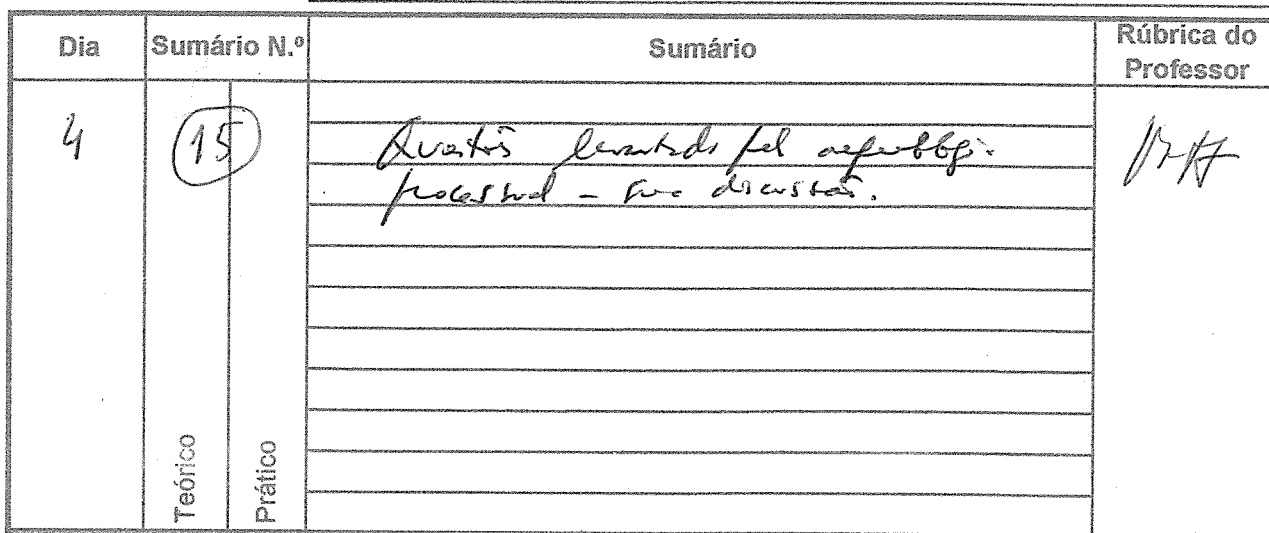 Dia
Sumário N.º
Sumário
Rúbrica do
Professor
4
15
Questões levantadas pela arqueologia
processual – sua discussão.
Teórico
Prático